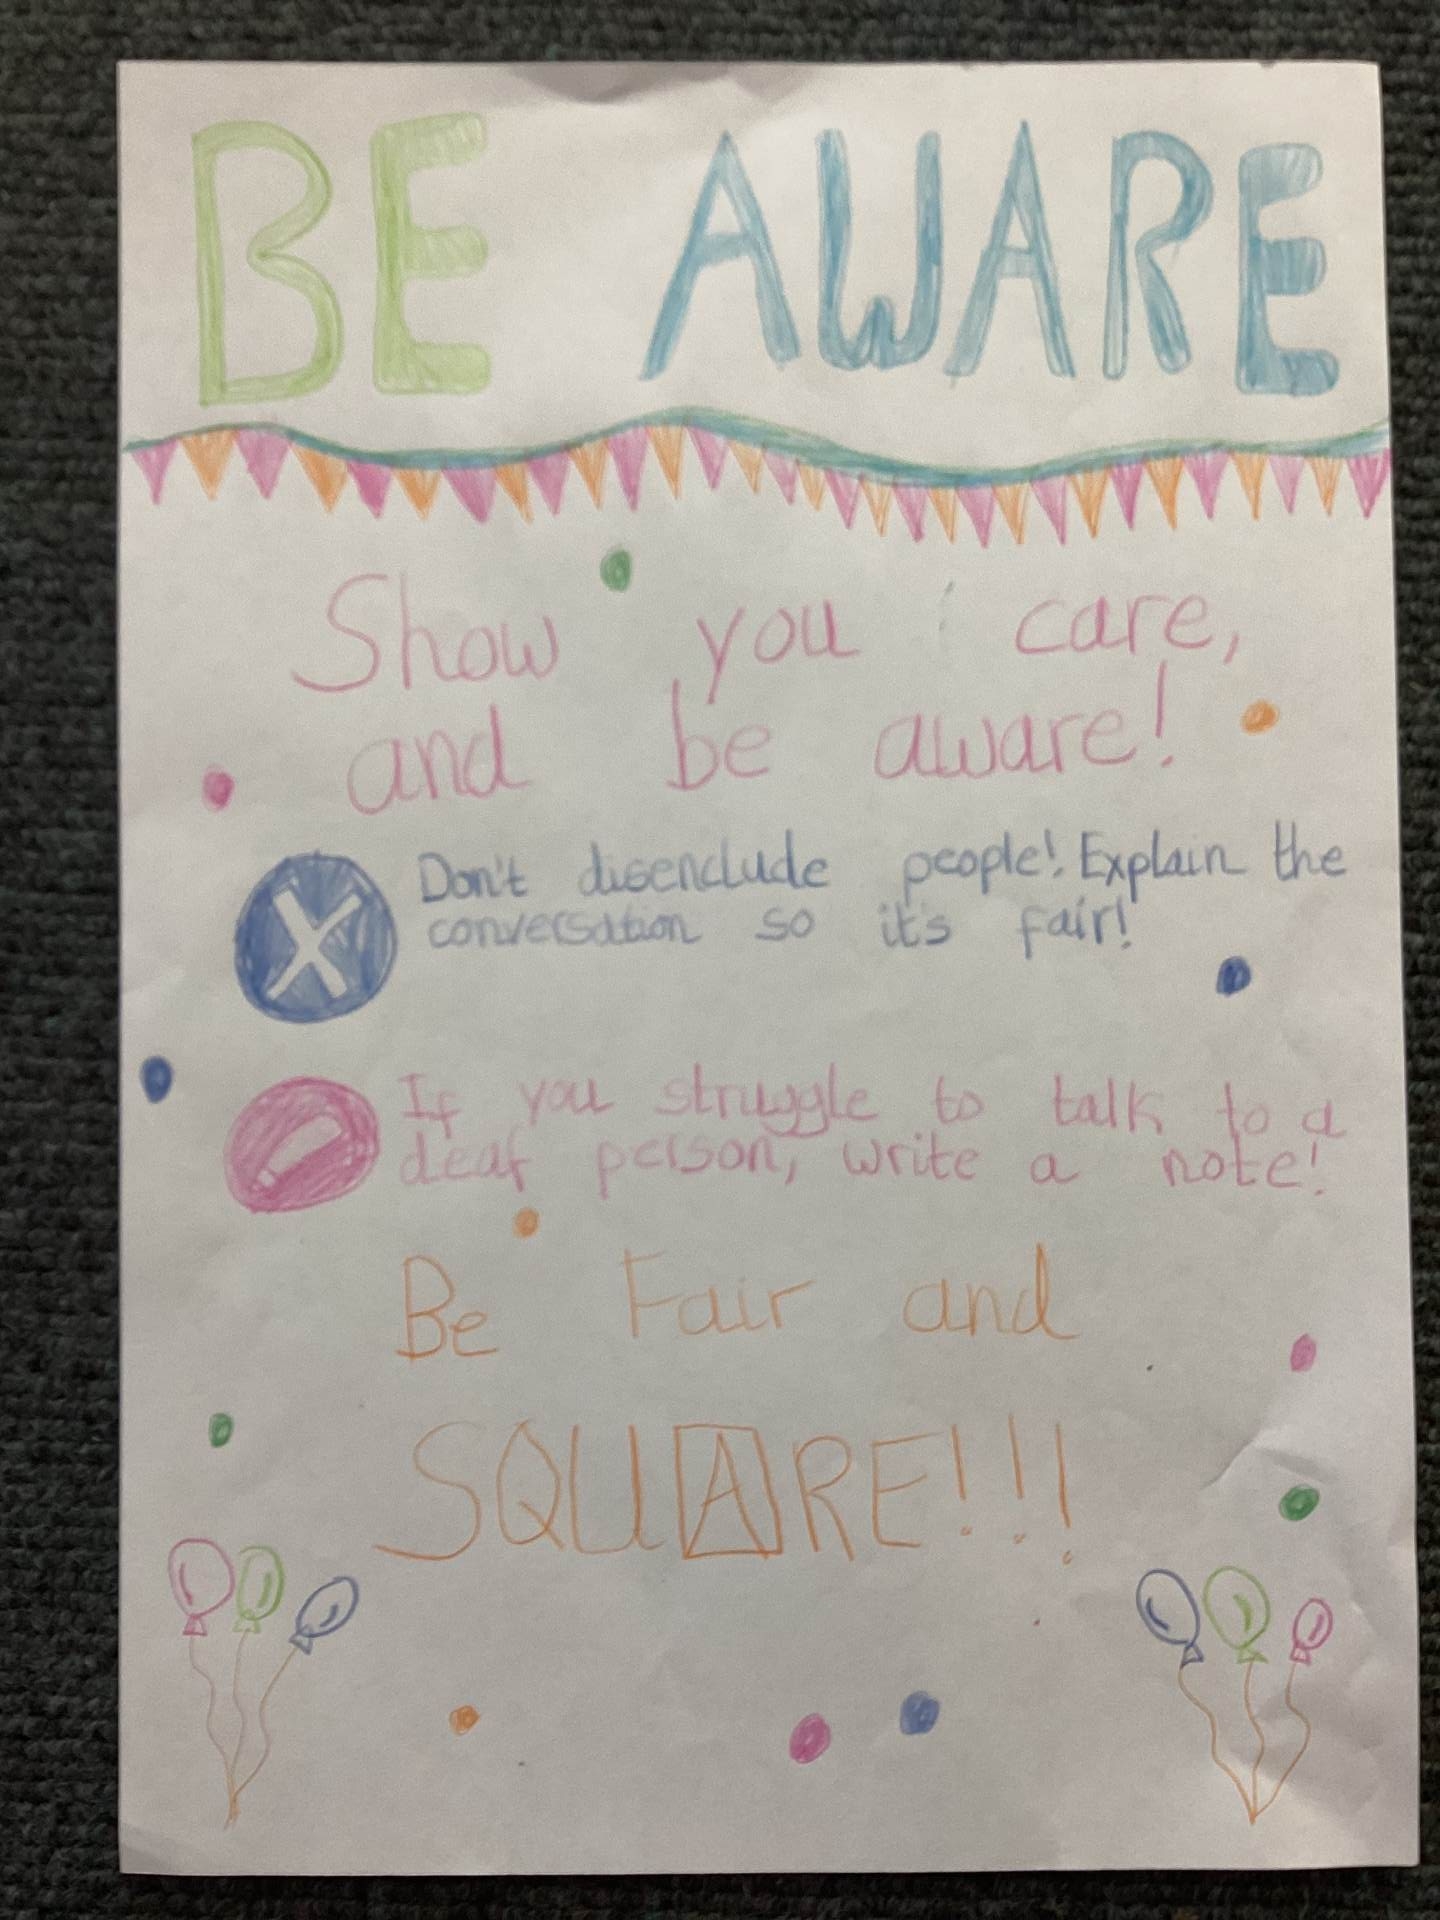 BE AWARE
Show you care,
and be aware!
Don't disenclude people! Explain the
conversation so it's fair!
If you struggle to talk to a
deaf person, write a note!
Be Fair and
SQUARE!!!